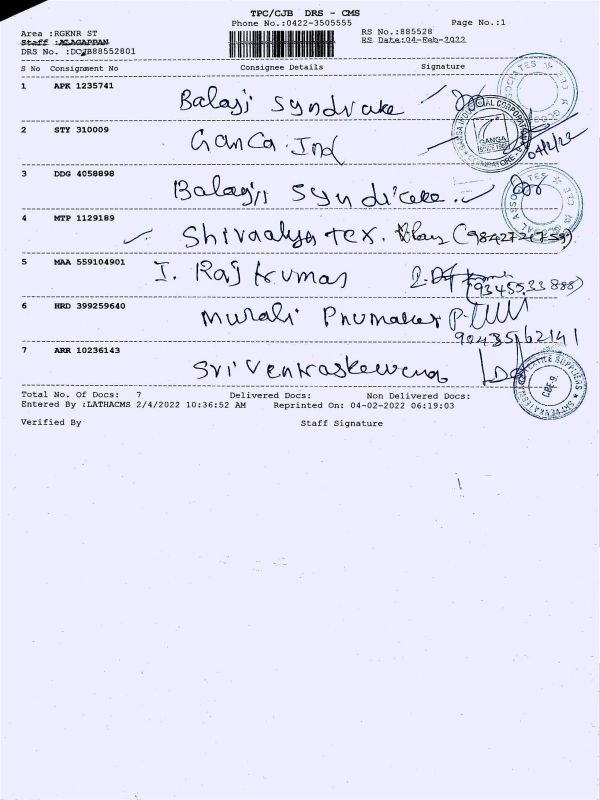 TPC/CJB DRS - CMS
Phone No.:0422-3505555 Page No.:1
Area :RGKNR ST RS No.:885528
Staff :ALAGAPPAN RS Date:04-Feb-2022
DRS No. :DCJB88552801
S No Consignment No Consignee Details Signature
1 APK 1235741 Balaji Syndicate
2 STY 310009 Ganga Ind 04/2/22
3 DDG 4058898 Balaji Syndicate
4 MTP 1129189 Shivaalya tex.
5 MAA 559104901 I. Raj kumar (9345533888)
6 HRD 399259640 Murali
9043562141
7 ARR 10236143 Sri
Total No. Of Docs: 7 Delivered Docs: Non Delivered Docs:
Entered By :LATHACMS 2/4/2022 10:36:52 AM Reprinted On: 04-02-2022 06:19:03
Verified By Staff Signature
GANGA
COIMBATORE